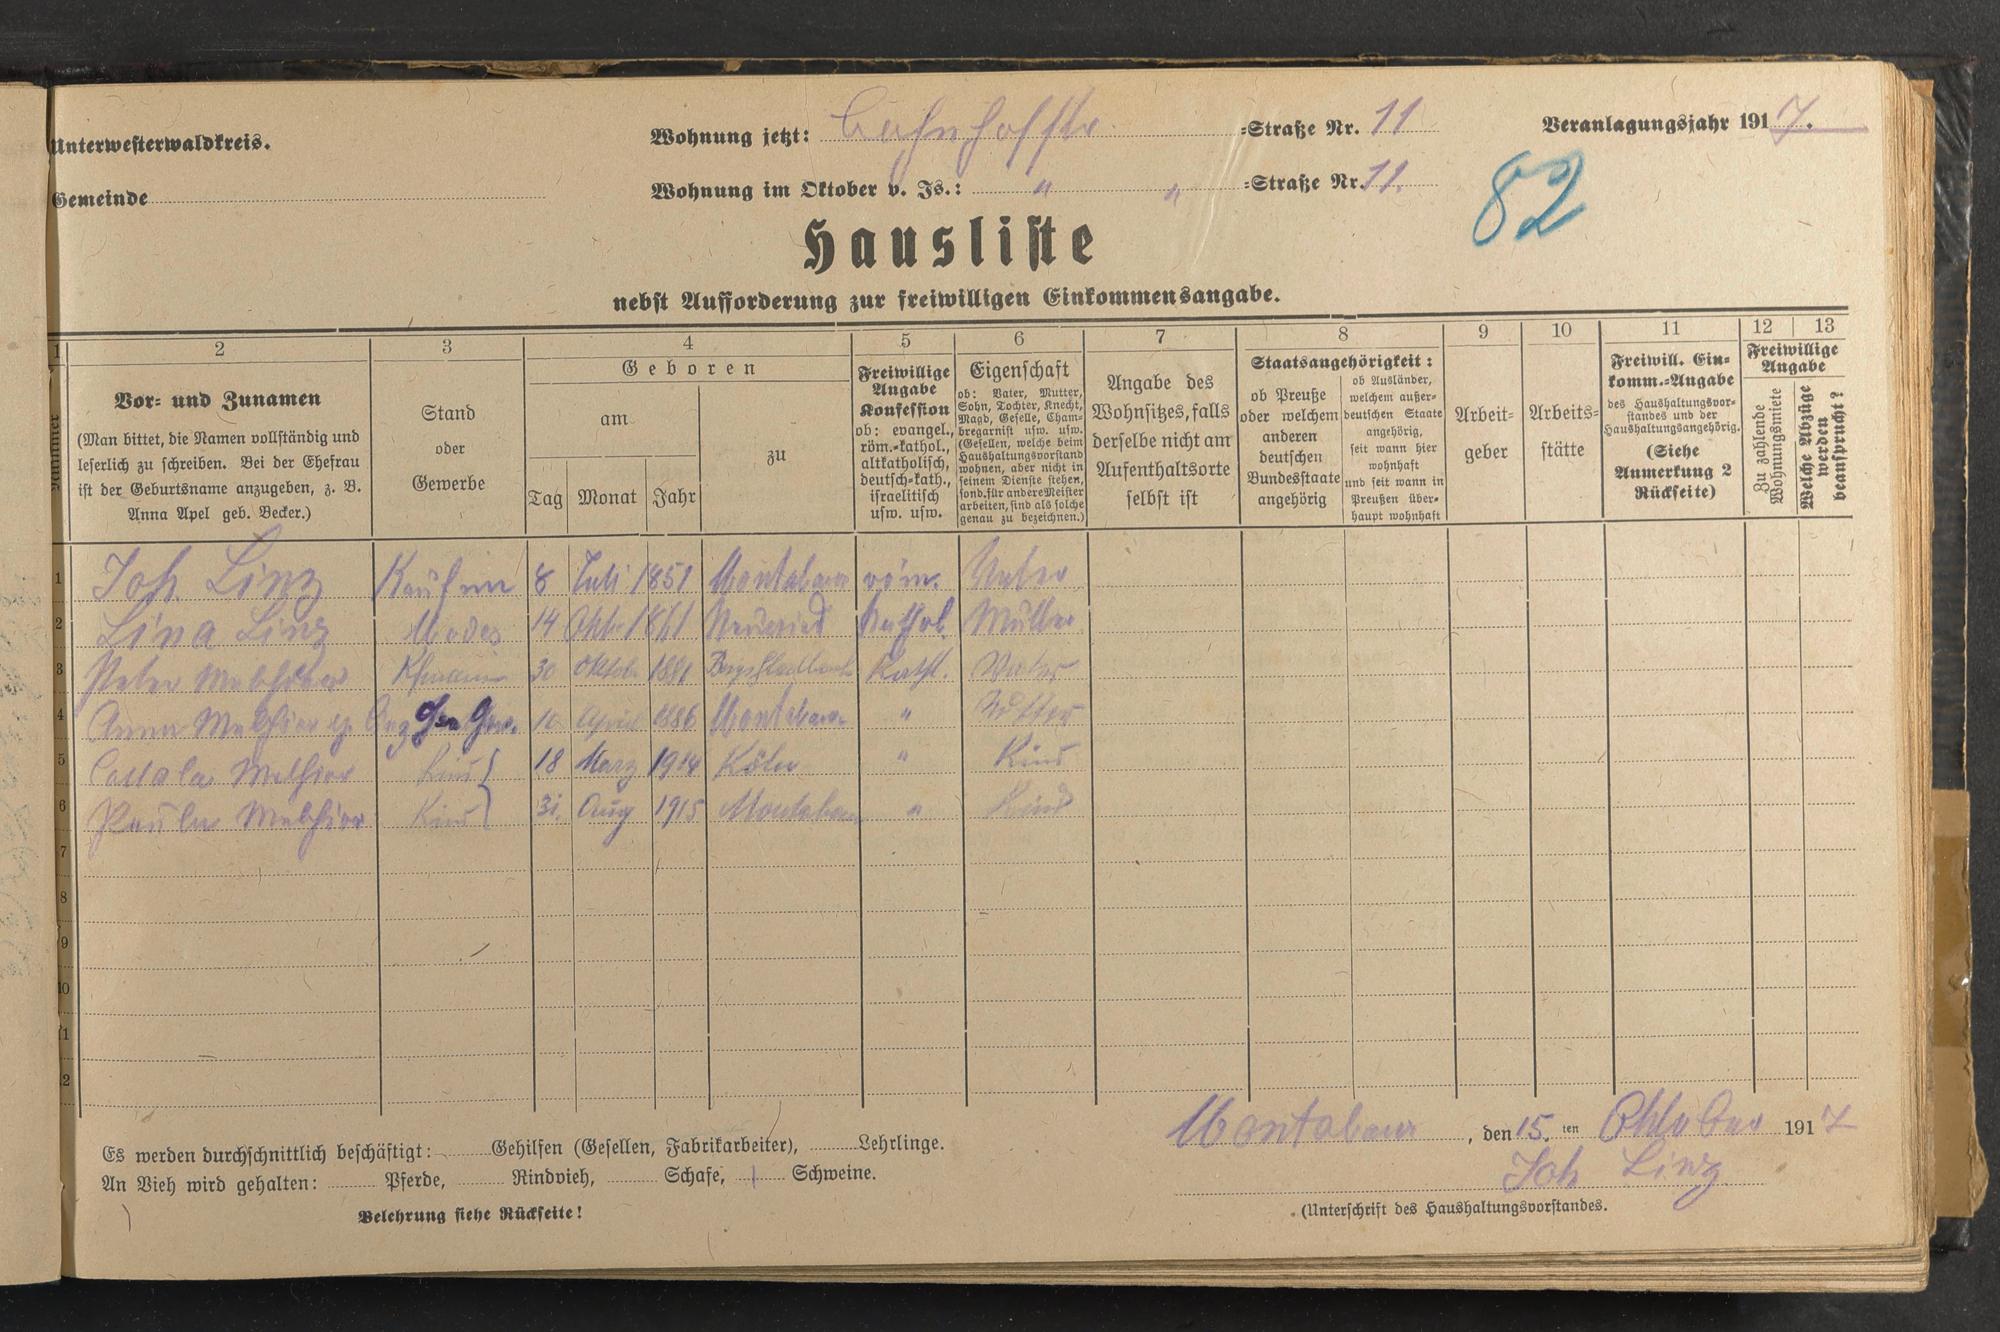 Unterwesterwaldkreis.
Wohnung jetzt: Bahnhofstr. =Straße Nr. 11
Veranlagungsjahr 1917.
Gemeinde
Wohnung im Oktober v. Js.: " " =Straße Nr. 11.
82
Hausliste
nebst Aufforderung zur freiwilligen Einkommensangabe.
1 2 3 4 5 6 7 8 9 10 11 12 13
Nummer
Vor- und Zunamen
(Man bittet, die Namen vollständig und
leserlich zu schreiben. Bei der Ehefrau
ist der Geburtsname anzugeben, z. B.
Anna Apel geb. Becker.)
Stand
oder
Gewerbe
Geboren
am
zu
Tag Monat Jahr
Freiwillige
Angabe
Konfession
ob: evangel.,
röm.-kathol.,
altkatholisch,
deutsch-kath.,
israelitisch
usw. usw.
Eigenschaft
ob: Vater, Mutter,
Sohn, Tochter, Knecht,
Magd, Geselle, Cham-
bregarnist usw. usw.
(Gesellen, welche beim
Haushaltungsvorstand
wohnen, aber nicht in
seinem Dienste stehen,
sond. für andere Meister
arbeiten, sind als solche
genau zu bezeichnen.)
Angabe des
Wohnsitzes, falls
derselbe nicht am
Aufenthaltsorte
selbst ist
Staatsangehörigkeit:
ob Preuße
oder welchem
anderen
deutschen
Bundesstaate
angehörig
ob Ausländer,
welchem außer-
deutschen Staate
angehörig,
seit wann hier
wohnhaft
und seit wann in
Preußen über-
haupt wohnhaft
Arbeit-
geber
Arbeits-
stätte
Freiwill. Ein-
komm.-Angabe
des Haushaltungsvor-
standes und der
Haushaltungsangehörig.
(Siehe
Anmerkung 2
Rückseite)
Freiwillige
Angabe
Zu zahlende
Wohnungsmiete
Welche Abzüge
werden
beansprucht?
1 Joh. Linz Kaufm 8 Juli 1851 Montabaur röm. Vater
2 Lina Linz Modes 14 Oktb. 1861 Neuwied Kathol. Mutter
3 Peter Melchior Kfmann 30 Oktob. 1881 Kathl. Vater
4 Anna Melchior 10 April 1886 Montabaur " Mutter
5 Melchior Kind 18 März 1914 Köln " Kind
6 Paula Melchior Kind 31. Aug 1915 Montabaur " Kind
7
8
9
10
11
12
Es werden durchschnittlich beschäftigt: Gehilfen (Gesellen, Fabrikarbeiter), Lehrlinge.
An Vieh wird gehalten: Pferde, Rindvieh, Schafe, 1 Schweine.
Belehrung siehe Rückseite!
Montabaur, den 15. ten Oktober 1917
Joh Linz
(Unterschrift des Haushaltungsvorstandes.